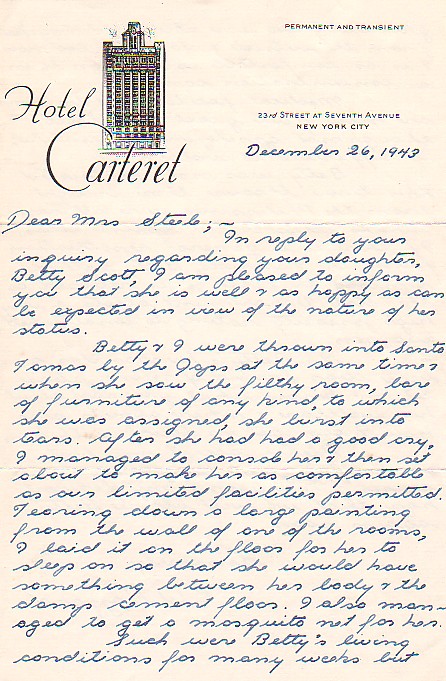 PERMANENT AND TRANSIENT
Hotel
Carteret
23rd STREET AT SEVENTH AVENUE
NEW YORK CITY
December 26, 1943
Dear Mrs Steele; ~
In reply to your
inquiry regarding your daughter,
Betty Scott, I am pleased to inform
you that she is well & as happy as can
be expected in view of the nature of her
status.
Betty & I were thrown into Santo
Tomas by the Japs at the same time &
when she saw the filthy room, bare
of furniture of any kind, to which
she was assigned, she burst into
tears. After she had had a good cry,
I managed to console her & then set
about to make her as comfortable
as our limited facilities permitted.
Tearing down a large painting
from the wall of one of the rooms,
I laid it on the floor for her to
sleep on so that she would have
something between her body & the
damp cement floor. I also man-
aged to get a mosquito net for her.
Such were Betty's living
conditions for many weeks but